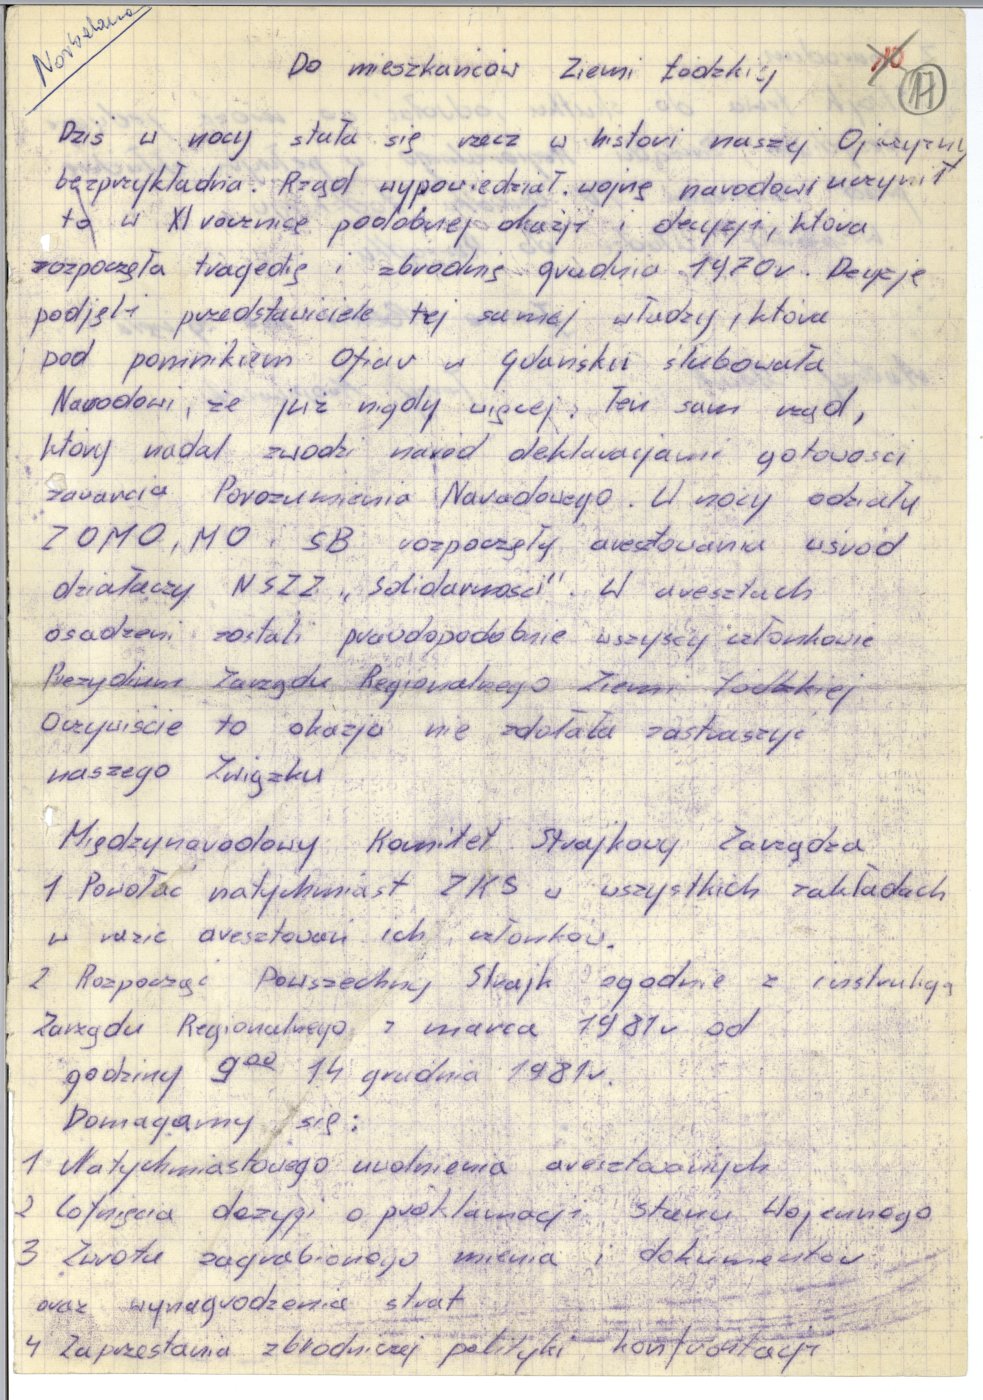 Do mieszkańców Ziemi Łódzkiej
10
17
Dziś w nocy stała się rzecz w histori naszej Ojczyzny
bezprzykładna. Rząd wypowiedział wojnę narodowi uczynił
to w XI rocznicę podobnej okazji i decyzji, która
rozpoczęła tragedię i zbrodnię grudnia 1970r. Decyzje
podjęli przedstawiciele tej samej władzy, która
pod pomnikiem Ofiar w Gdańsku ślubowała
Narodowi, że już nigdy więcej. Ten sam rząd,
który nadal zwodzi naród deklaracjami gotowości
zawarcia Porozumienia Narodowego. W nocy odziały
ZOMO, MO i SB rozpoczęły aresztowania wśród
działaczy NSZZ „Solidarność". W aresztach
osadzeni zostali prawdopodobnie wszyscy członkowie
Prezydium Zarządu Regionalnego Ziemi Łódzkiej
Oczywiście to okazja nie zdołała zastraszyć
naszego Związku
Międzynarodowy Komitet Strajkowy Zarządza
1 Powołać natychmiast ZKS w wszystkich zakładach
w razie aresztowań ich członków.
2 Rozpocząć Powszechny Strajk zgodnie z instrukcją
Zarządu Regionalnego z marca 1981r od
godziny 9⁰⁰ 14 grudnia 1981r.
Domagamy się:
1 Natychmiastowego uwolnienia aresztowanych
2 Cofnięcia decyzji o proklamacji stanu Wojennego
3 Zwrotu zagrabionego mienia i dokumentów
oraz wynagrodzenia strat
4 Zaprzestania zbrodniczej polityki konfrontacji